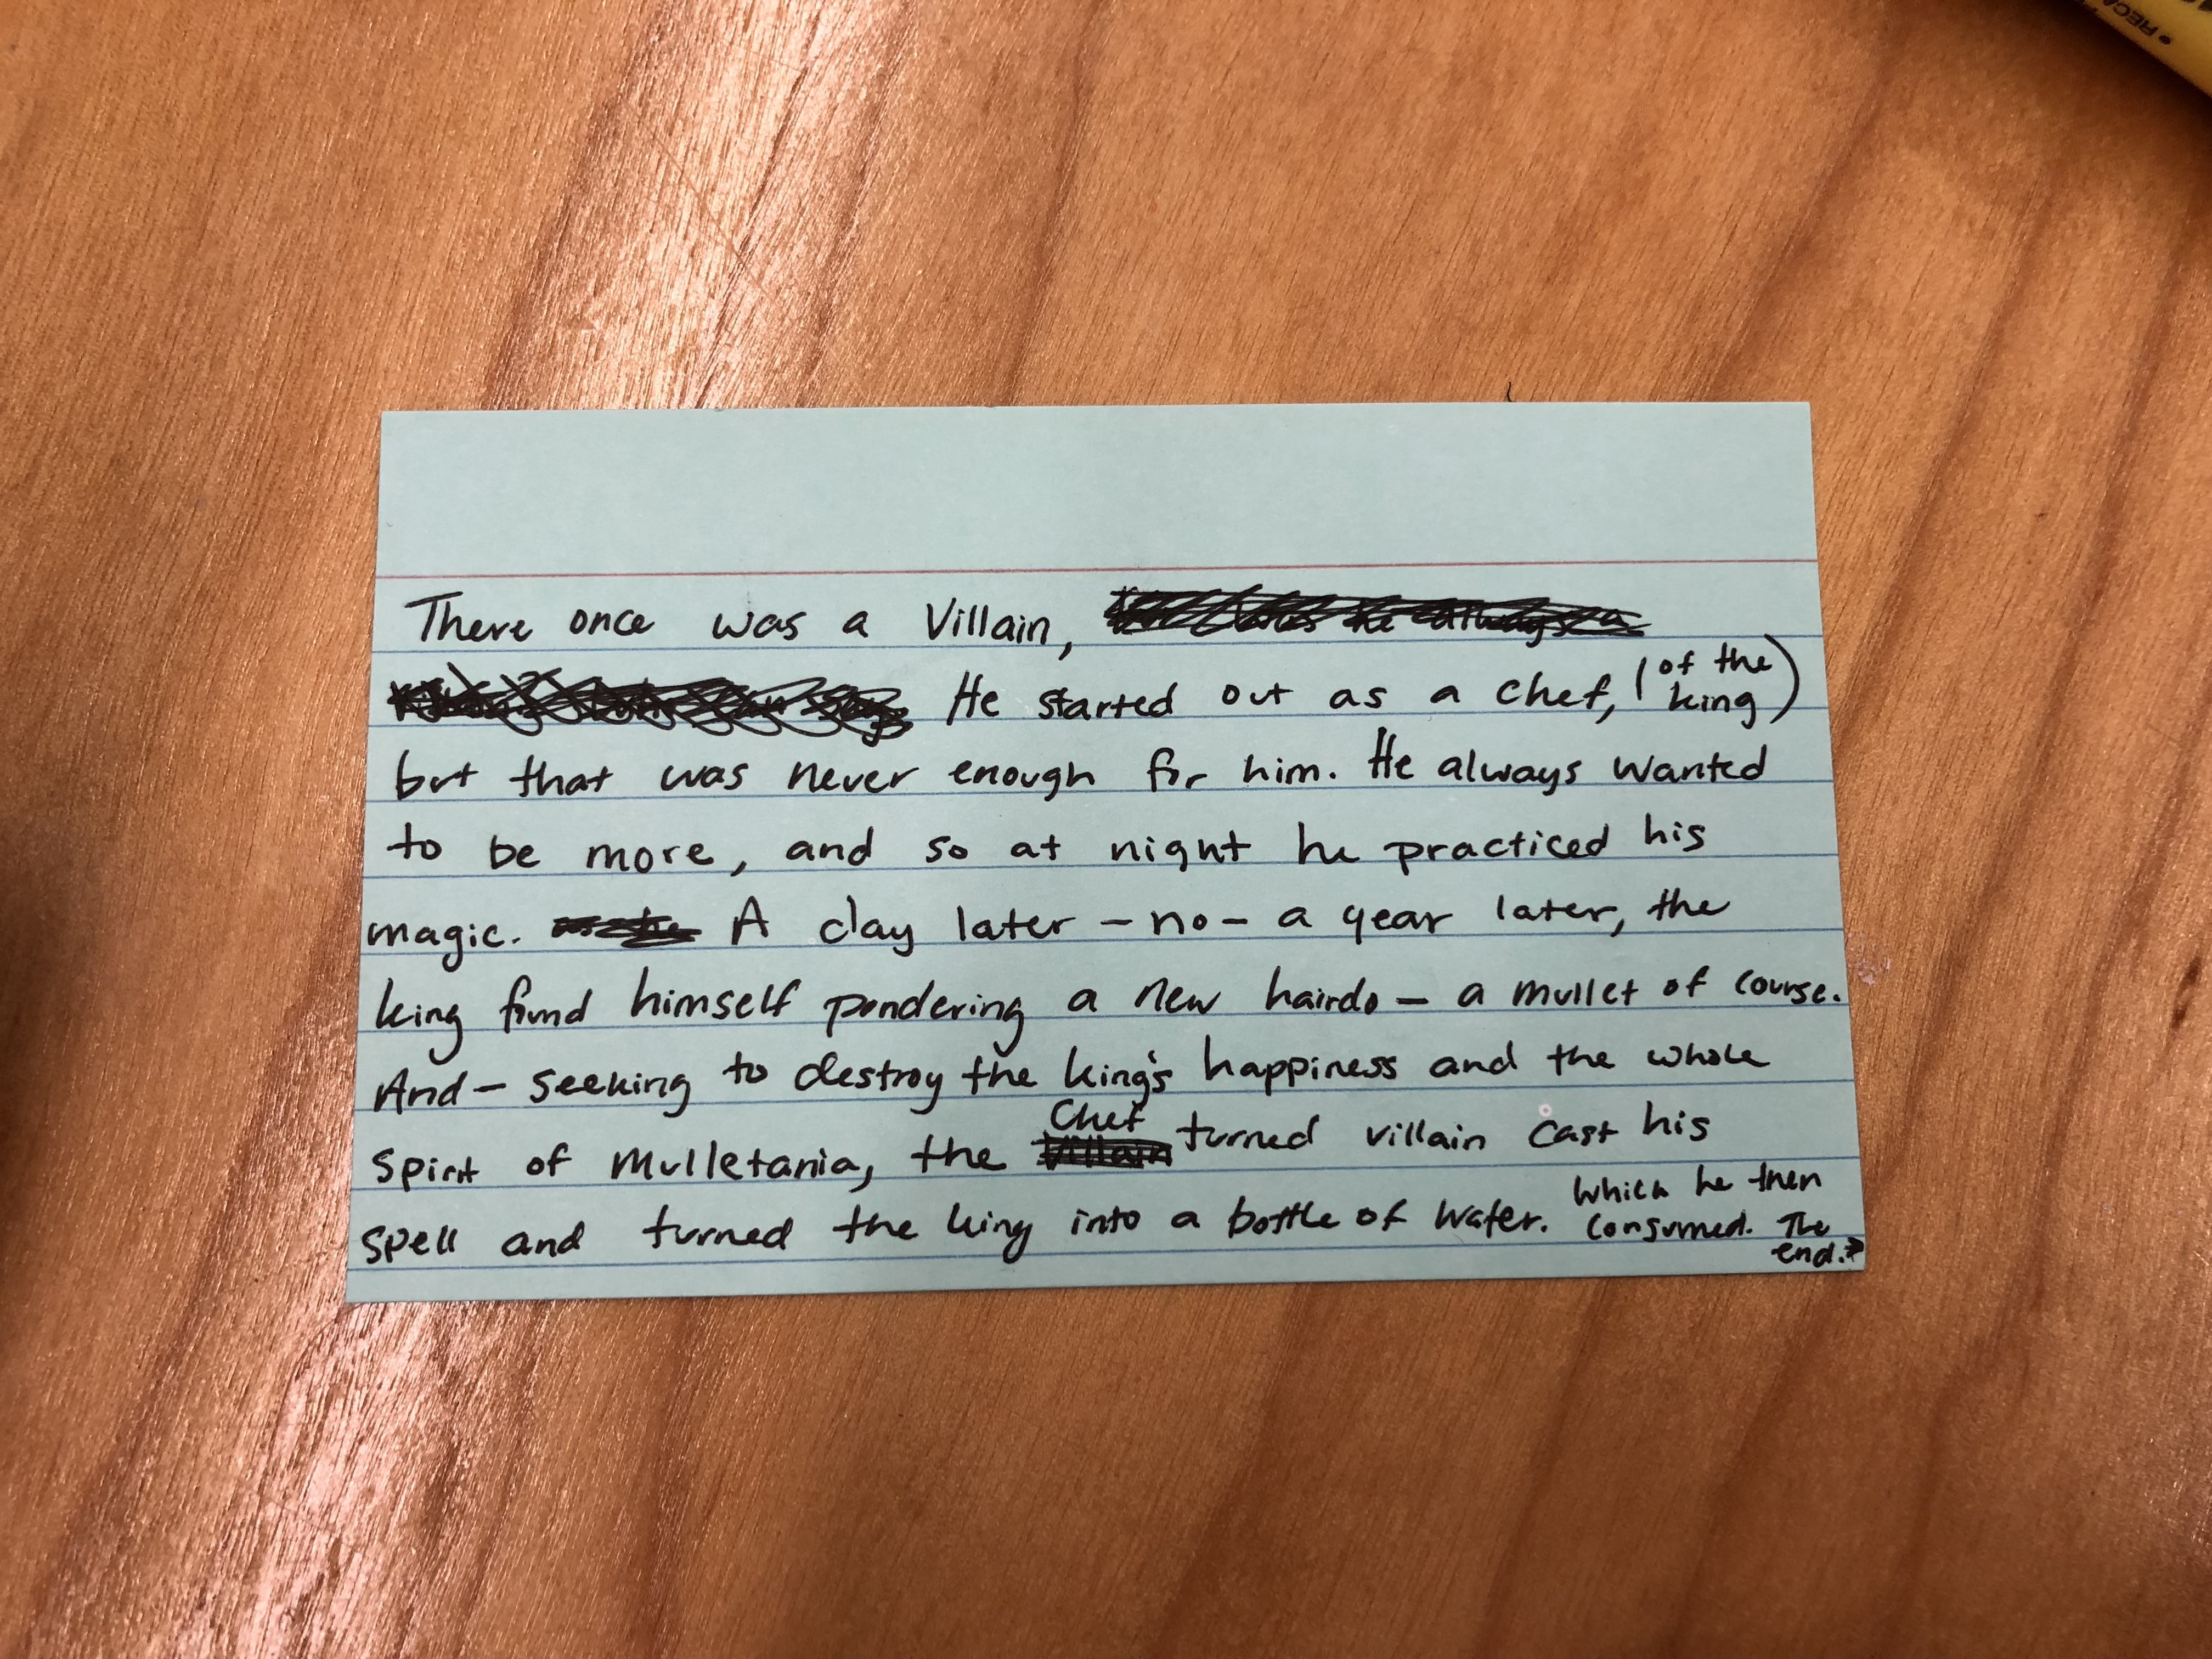 There once was a Villain,
He started out as a chef, (of the king)
but that was never enough for him. He always wanted
to be more, and so at night he practiced his
magic. A day later - no - a year later, the
king found himself pondering a new hairdo - a mullet of course.
And - seeking to destroy the king's happiness and the whole
spirit of Mulletania, the Chef turned villain cast his
spell and turned the king into a bottle of water. which he then
consumed. The
end.